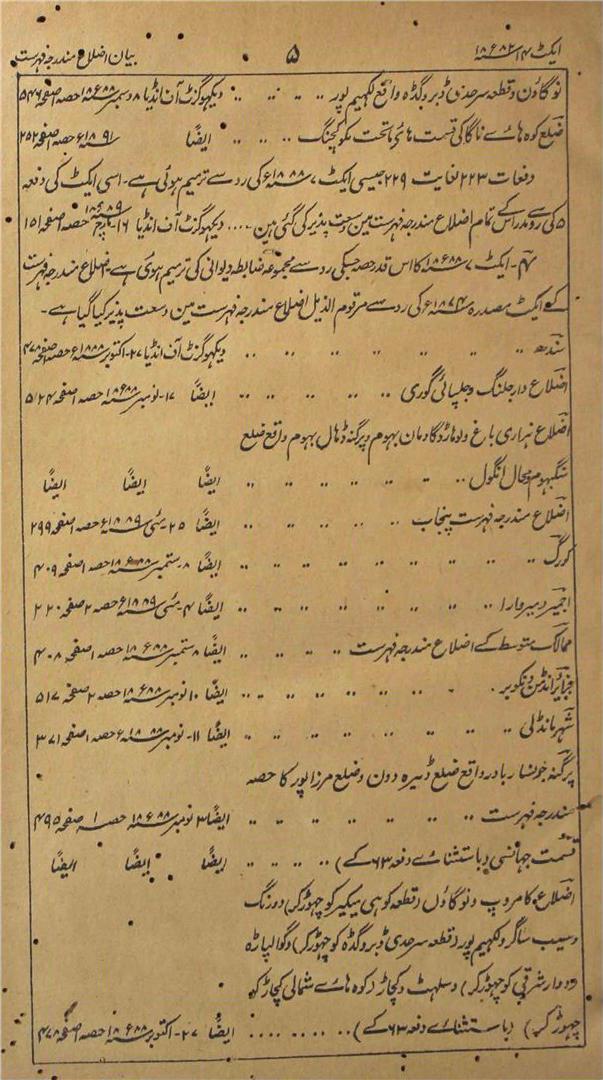 ایکٹ ۱۴ سنہ ۱۸۸۲ء ۵ بیان اضلاع مندرجہ فہرست
نوگاؤن و قطعہ سرحدی ڈبروگڈہ واقع لکہیم پور .. .. .. .. دیکہو گزٹ آف انڈیا ۸ دسمبر سنہ ۱۸۸۸ء حصہ ۱ صفحہ ۵۴۶
ضلع کوہ ہاے ناگا کی قسمت ہای ماتحت مکوکچنگ .. .. .. ایضًا سنہ ۱۸۹۱ء حصہ ۱ صفحہ ۲۵۲
دفعات ۲۲۳ لغایت ۲۲۹ جیسی ایکٹ ۷ سنہ ۱۸۸۸ء کی رو سے ترمیم ہوئی ہے۔ اسی ایکٹ کی دفعہ
۵ کی رو سے مدراس کے تمام اضلاع مندرجہ فہرست مین وسعت پذیر کی گئی ہین .... دیکہو گزٹ آف انڈیا ۱۶۔ مارچ سنہ ۱۸۸۹ء حصہ ۱ صفحہ ۱۵۱
۴م۔ ایکٹ ۷ سنہ ۱۸۸۸ء کا اس قدر حصہ جسکی رو سے مجموعہ ضابطہ دیوانی کی ترمیم ہوئی ہے۔ اضلاع مندرجہ فہرست
کے ایکٹ مصدرہ سنہ ۱۸۷۴ء کی رو سے مرقوم الذیل اضلاع مندرجہ فہرست مین وسعت پذیر کیا گیا ہے۔
سندھ .. .. .. .. .. .. دیکہو گزٹ آف انڈیا ۲۷۔ اکتوبر سنہ ۱۸۸۸ء حصہ ۱ صفحہ ۴۷۸
اضلاع دارجلنگ و جلپائی گوری .. .. .. .. ایضًا ۱۷۔ نومبر سنہ ۱۸۸۸ء حصہ ۱ صفحہ ۵۲۴
اضلاع ہزاری باغ و لوہارڈگا و مان بہوم و پرگنہ ڈہال بہوم واقع ضلع
سنگبہوم و محال انگول .. .. .. .. .. .. ایضًا ایضًا ایضًا
اضلاع مندرجہ فہرست پنجاب .. .. .. .. .. ایضًا ۲۵۔ مئی سنہ ۱۸۸۹ء حصہ ۱ صفحہ ۲۹۹
کورگ .. .. .. .. .. .. .. ایضًا ۸۔ ستمبر سنہ ۱۸۸۸ء حصہ ۱ صفحہ ۴۰۹
اجمیر و میروارا .. .. .. .. .. .. ایضًا ۴۔ مئی سنہ ۱۸۸۹ء حصہ ۲ صفحہ ۲۲۰
ممالک متوسط کے اضلاع مندرجہ فہرست .. .. .. .. ایضًا ۸ ستمبر سنہ ۱۸۸۸ء حصہ ۱ صفحہ ۴۰۸
جزایر انڈمن و نکوبر .. .. .. .. .. .. ایضًا ۱۰ نومبر سنہ ۱۸۸۸ء حصہ ۲ صفحہ ۵۱۷
شہر مانڈلی .. .. .. .. .. .. .. ایضًا ۱۱۔ نومبر سنہ ۱۸۸۸ء حصہ ۱ صفحہ ۳۷۱
پرگنہ جونسار بادر واقع ضلع ڈیرہ دون و ضلع مرزاپور کا حصہ
مندرجہ فہرست .. .. .. .. .. .. ایضًا ۳ نومبر سنہ ۱۸۸۸ء حصہ ۱ صفحہ ۴۹۵
قسمت جہانسی (باستثناے دفعہ ۶۳ کے) .. .. .. .. ایضًا ایضًا ایضًا
اضلاع کامروپ و نوگاؤن (قطعہ کوہی میکیر کو چہوڑ کر) و درنگ
و سیب ساگر و لکہیم پور (قطعہ سرحدی ڈبروگڈہ کو چہوڑ کر) و گوالپاڑہ
(دوار شرقی کو چہوڑ کر) و سلہٹ و کچاڑ (کوہ ہاے شمالی کچاڑ کو
چہوڑ کر) (باستثناے دفعہ ۶۳ کے) .. .. .. .. ایضًا ۲۷۔ اکتوبر سنہ ۱۸۸۸ء حصہ ۱ صفحہ ۴۷۸